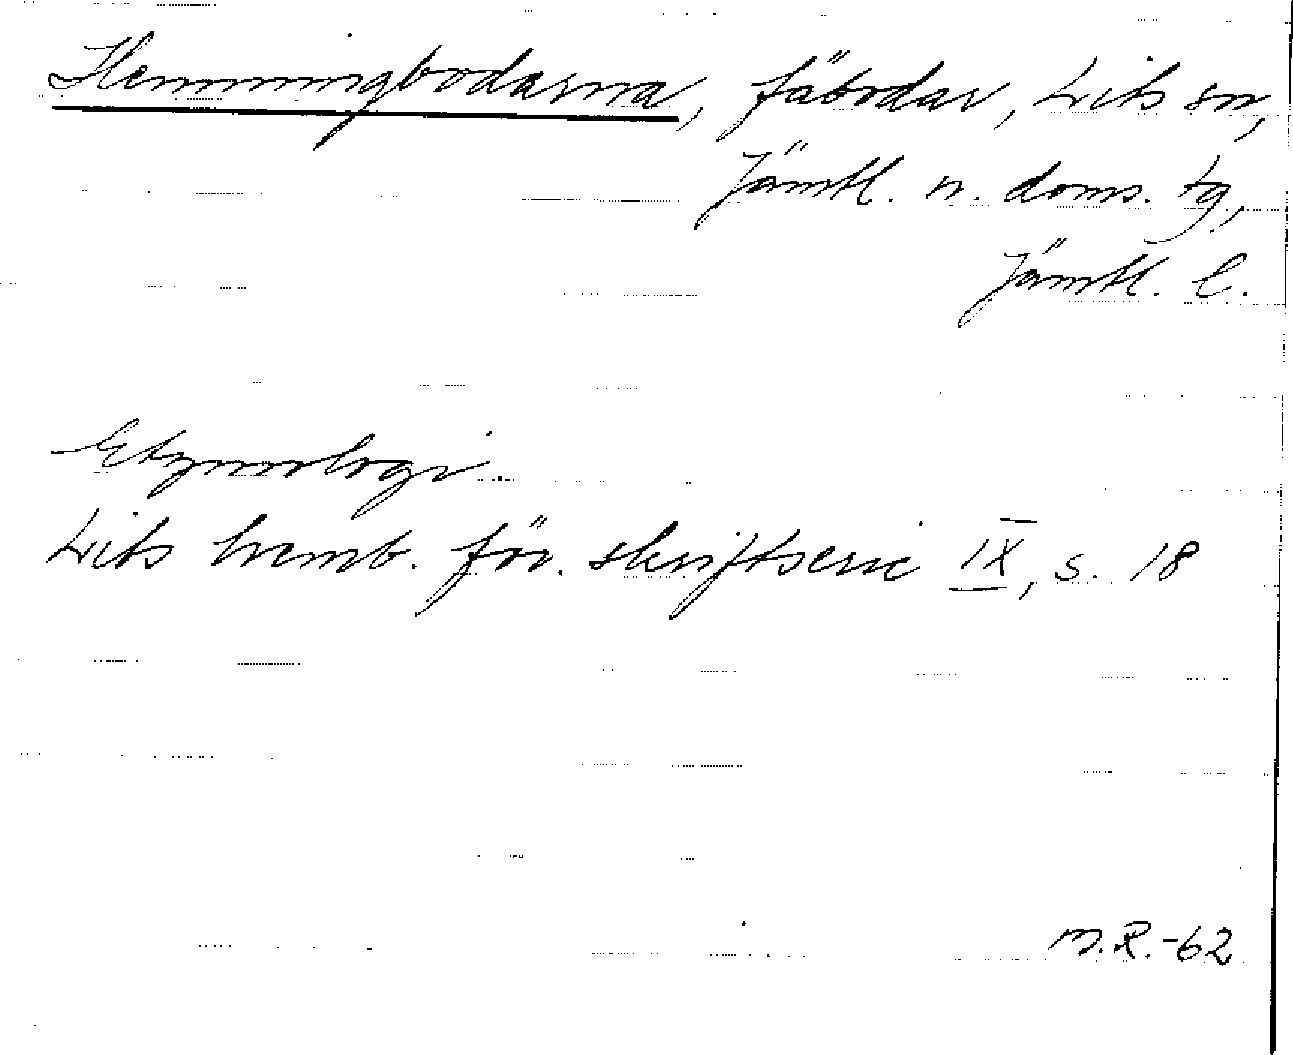 Hemmingbodarna, fäbodar, Lits sn,
Jämtl. n. doms. tg,
Jämtl. l.
Etymologi
Lits hemb. för. skriftserie IX, s. 18
M.R.-62